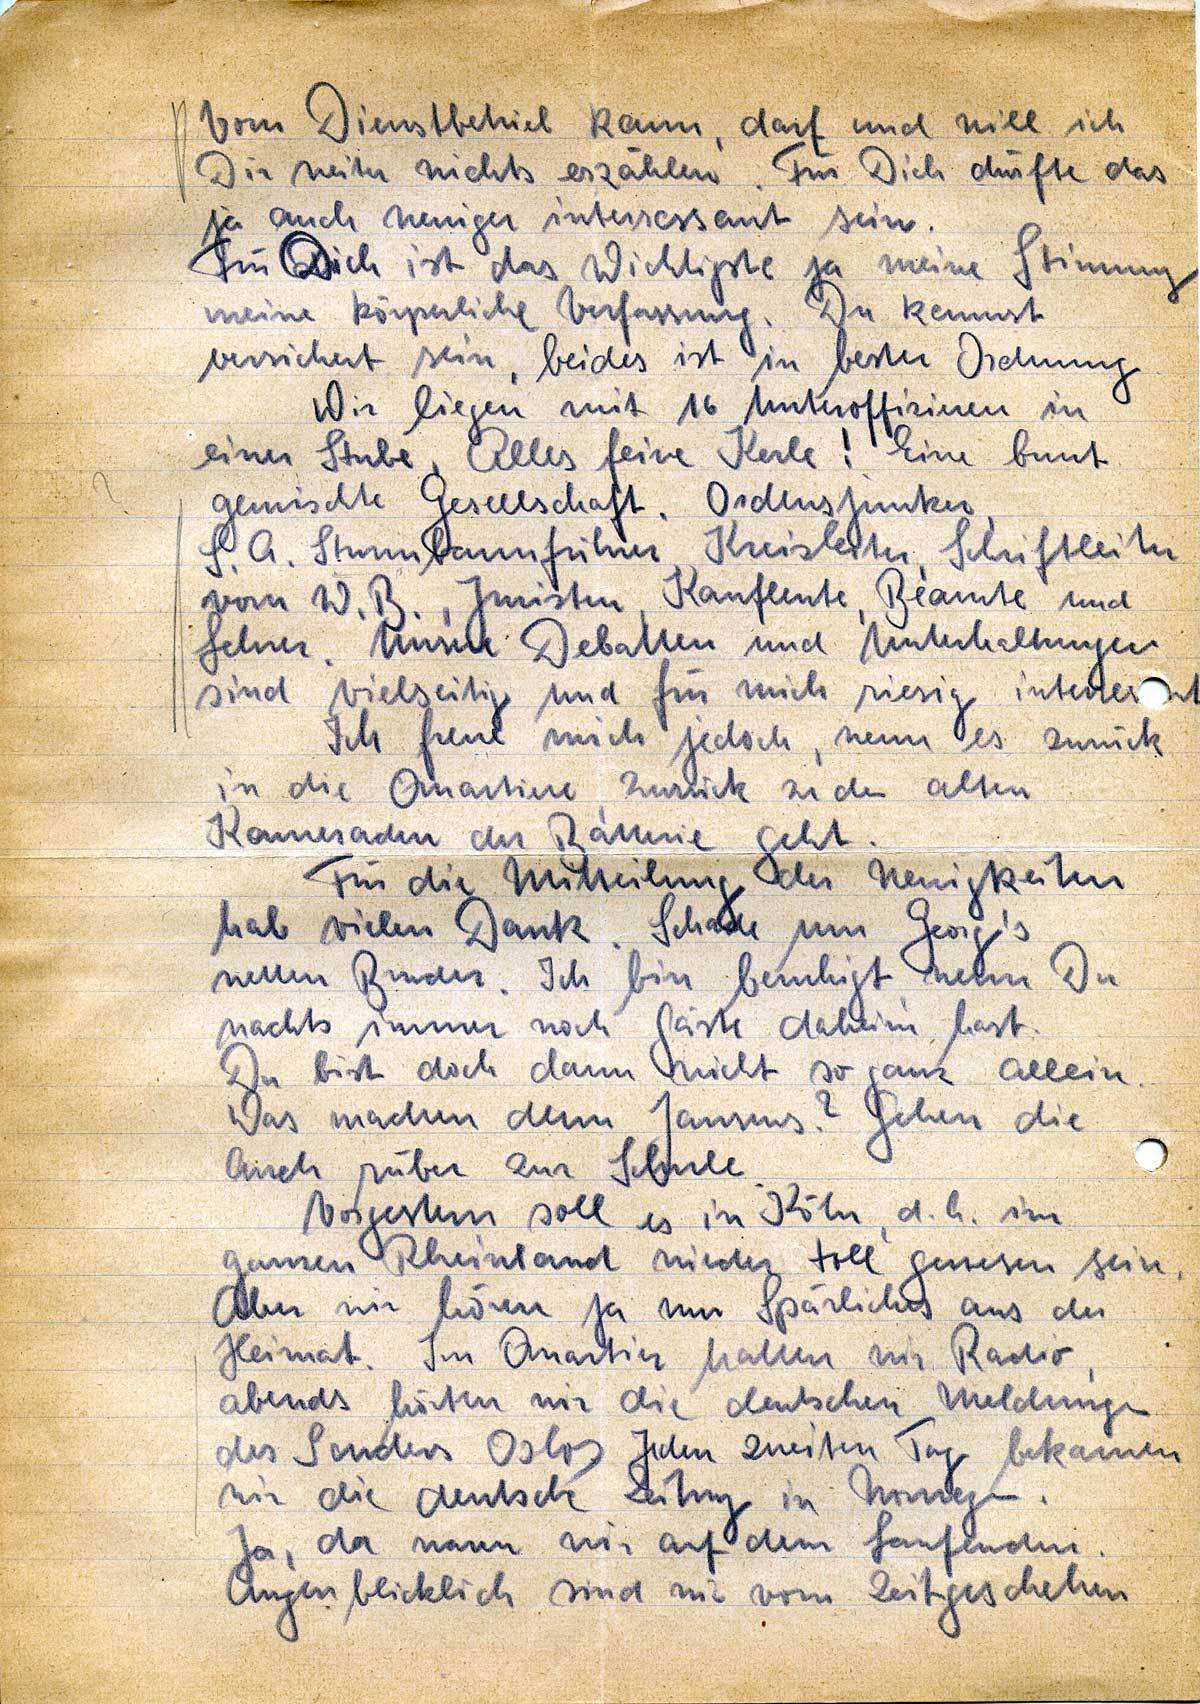 Vom Dienstbetrieb kann, darf und will ich
Dir weiter nichts erzählen. Für Dich dürfte das
ja auch weniger interessant sein.
Für Dich ist das Wichtigste ja meine Stimmung
meine körperliche Verfassung. Du kannst
versichert sein, beides ist in bester Ordnung
Wir liegen mit 16 Unteroffizieren in
einer Stube. Alles feine Kerle! Eine bunt
gemischte Gesellschaft. Ordensjunker,
S.A. Sturmbannführer, Kreisleiter, Schriftleiter
vom W.B., Juristen, Kaufleute, Beamte und
Lehrer. Unsere Debatten und Unterhaltungen
sind vielseitig und für mich riesig interessant
Ich freue mich jedoch, wenn es zurück
in die Quartiere zurück zu den alten
Kameraden der Batterie geht.
Für die Mitteilung der Neuigkeiten
hab vielen Dank. Schade um Georg's
netten Bruder. Ich bin beruhigt, wenn Du
nachts immer noch Gäste daheim hast.
Du bist doch dann nicht so ganz allein.
Was machen denn Jansens? Gehen die
auch rüber zur Schule
Vorgestern soll es in Köln, d.h. im
ganzen Rheinland wieder toll gewesen sein.
Aber wir hören ja nur Spärliches aus der
Heimat. Im Quartier hatten wir Radio,
abends hörten wir die deutschen Meldungen
des Senders Oslo, Jeden zweiten Tag bekamen
wir die deutsche Zeitung in Norwegen.
Ja, da waren wir auf dem Laufenden.
Augenblicklich sind wir vom Zeitgeschehen